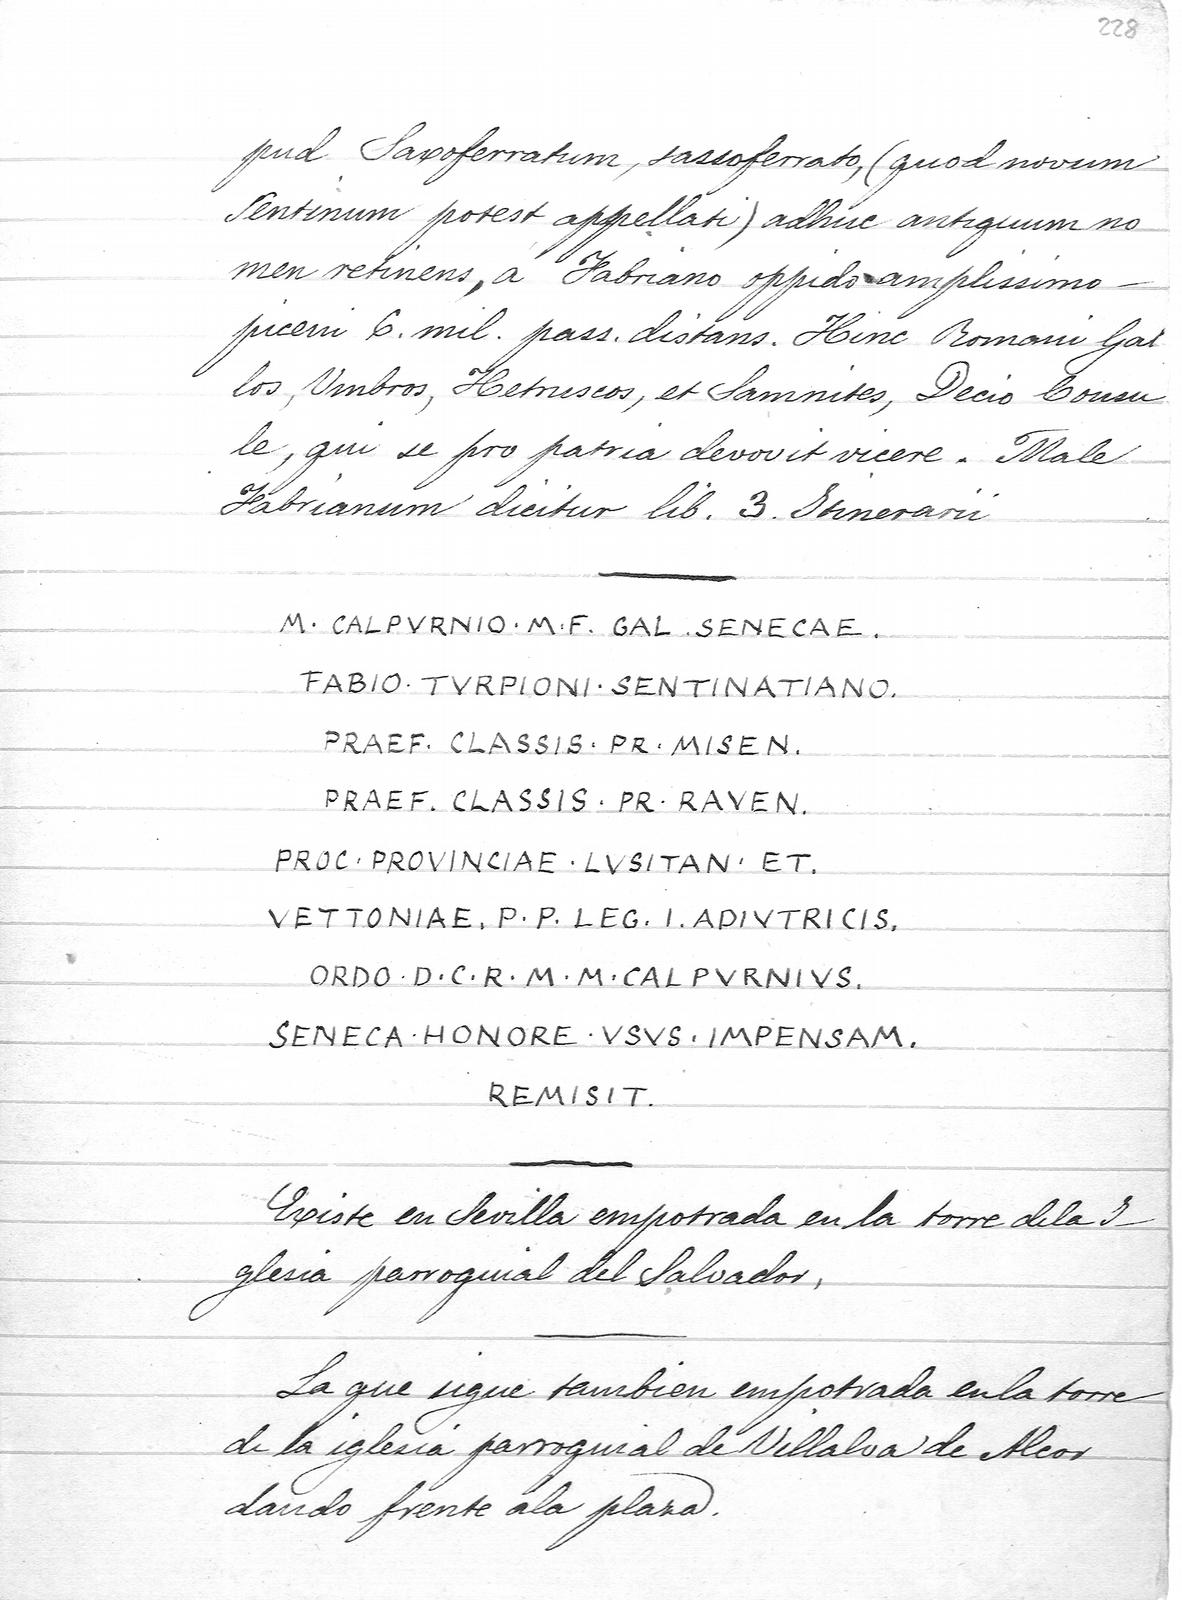 228
pud Saxoferratum, sassoferrato, (quod novum
Sentinum potest appellati) adhuc antiquum no
men retinens, a Fabriano oppido amplissimo –
piceni 6. mil. pass. distans. Hinc Romani Gal
los, Vmbros, Hetruscos, et Samnites, Decio Consu
le, qui se pro patria devovit vicere. Male
Fabrianum dicitur lib. 3. Itinerarii
M. CALPVRNIO. M. F. GAL. SENECAE.
FABIO. TVRPIONI. SENTINATIANO.
PRAEF. CLASSIS. PR. MISEN.
PRAEF. CLASSIS. PR. RAVEN.
PROC. PROVINCIAE. LVSITAN. ET.
VETTONIAE. P. P. LEG. I. ADIVTRICIS.
ORDO. D. C. R. M. M. CALPVRNIVS.
SENECA. HONORE. VSVS. IMPENSAM.
REMISIT.
Existe en Sevilla empotrada en la torre dela I–
glesia parroquial del Salvador,
La que sigue tambien empotrada enla torre
de la iglesia parroquial de Villalva de Alcor
dando frente ala plaza.